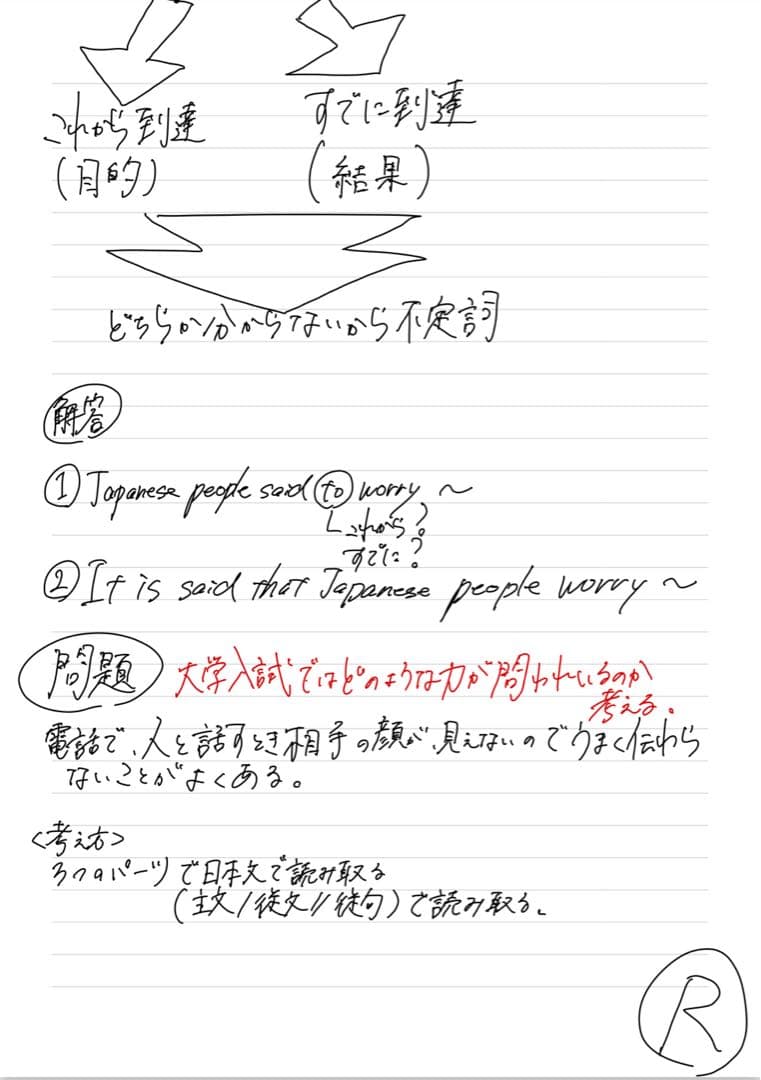 これから到達
(目的)
すでに到達
(結果)
どちらか分からないから不定詞
解答
① Japanese people said to worry ～
これから?
すでに?
② It is said that Japanese people worry ～
問題 大学入試ではどのような力が問われいるのか
考える。
電話で、人と話すとき相手の顔が、見えないのでうまく伝わら
ないことがよくある。
<考え方>
3つのパーツで日本文で読み取る
(主文/従文//従句)で読み取る。
R